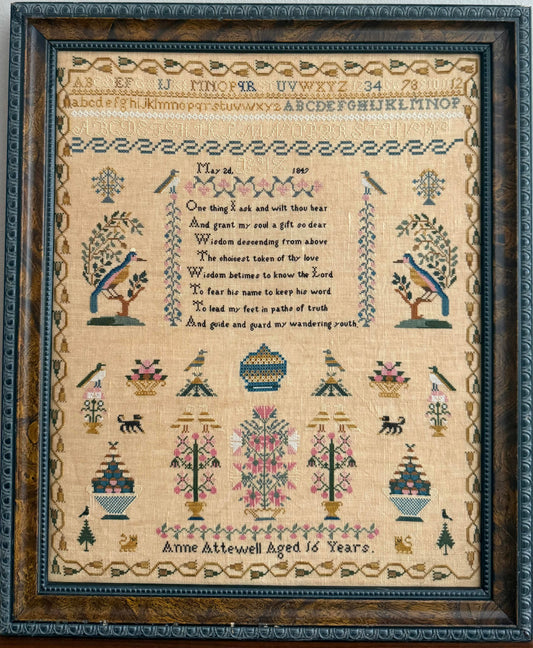 AB EF IJ MNOPQR UVWXYZ 34 78 12
abcdefghijklmnopqrstuvwxyz ABCDEFGHIJKLMNOP
May 2d, 1849
One thing I ask and wilt thou hear
And grant my soul a gift so dear
Wisdom descending from above
The choicest token of thy love
Wisdom betimes to know the Lord
To fear his name to keep his word
To lead my feet in paths of truth
And guide and guard my wandering youth
Anne Attewell Aged 16 Years.